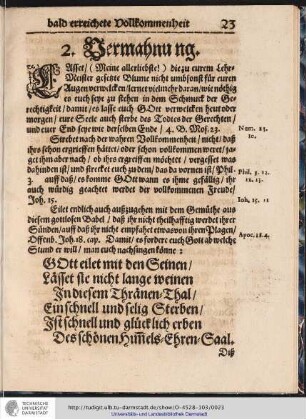 bald erreichete Vollkommenheit 23
2. Vermahnung.
LAsset / (Meine allerliebste!) diezu eurem Lehr-
Meister gesetzte Blume nicht umbsonst für euren
Augen verwelcken / lernet vielmehr daran / wie nöthig
es euch sey zu stehen in dem Schmuck der Ge-
rechtigkeit / damit / es lasse euch GOtt verwelcken heut oder
morgen / eure Seele auch sterbe des Todtes der Gerechten /
und euer End sey wie derselben Ende / 4. B. Mos. 23.
Num. 23.
10.
Strebet nach der wahren Vollkommenheit / nicht / daß
ihrs schon ergriffen hättet / oder schon vollkommen weret / ja-
get ihm aber nach / ob ihrs ergreiffen möchtet / vergesset was
dahinden ist / und strecket euch zu dem / das da vornen ist / Phil.
3. auff daß / es komme GOtt wann es ihme gefällig / ihr
auch würdig geachtet werdet der vollkommenen Freude /
Joh. 15.
Phil. 3. 12.
12. 13.
Ioh. 15. 11
Eilet endlich auch außzugehen mit dem Gemüthe aus
diesem gottlosen Babel / daß ihr nicht theilhafftig werdet ihrer
Sünden / auff daß ihr nicht empfahet etwas von ihren Plagen /
Offenb. Joh. 18. cap. Damit / es fordere euch Gott ab welche
Stund er will / man euch nachsingen könne:
Apoc. 18. 4.
GOtt eilet mit den Seinen /
Lässet sie nicht lange weinen
In diesem Thränen-Thal /
Ein schnell und selig Sterben /
Ist schnell und glücklich erben
Des schönen Himels-Ehren-Saal.
Diß
TECHNISCHE
UNIVERSITÄT
DARMSTADT
http://tudigit.ulb.tu-darmstadt.de/show/O-4528-193/0023
Universitäts- und Landesbibliothek Darmstadt